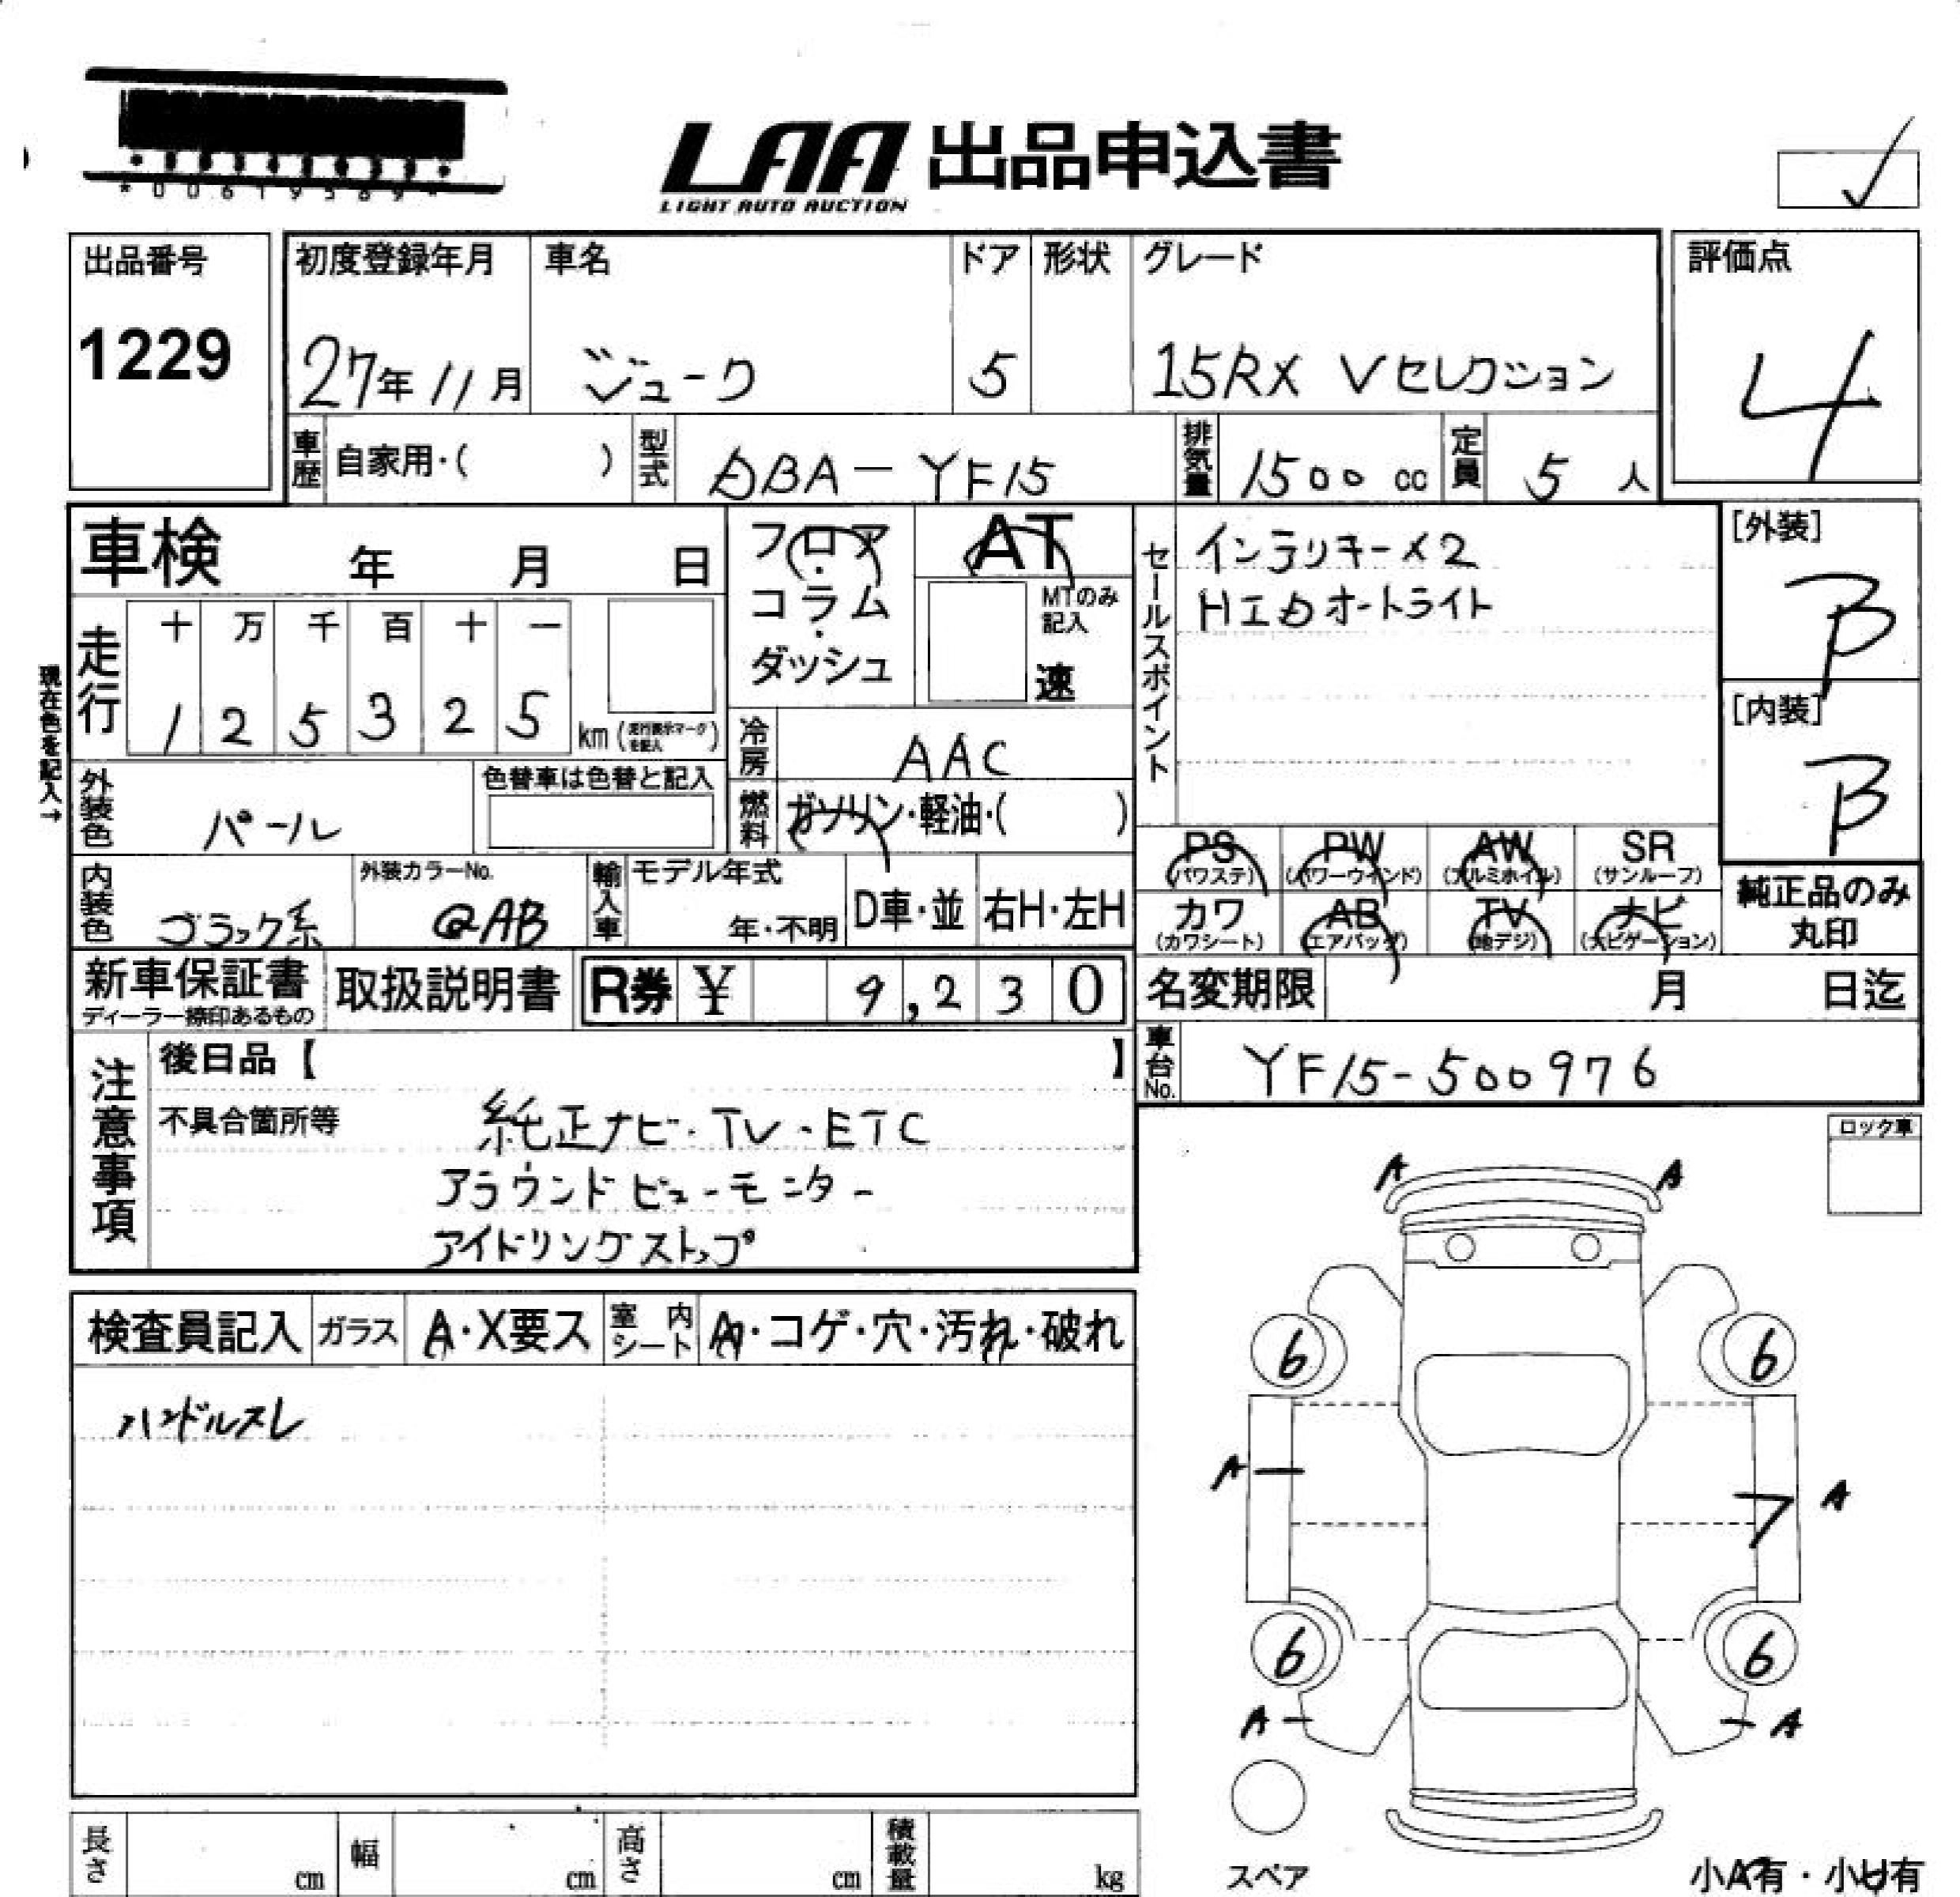 *00619569*
LAA 出品申込書
LIGHT AUTO AUCTION
出品番号
1229
初度登録年月
27年11月
車名
ジューク
ドア
5
形状
グレード
15RX Vセレクション
評価点
4
車歴
自家用・( )
型式
DBA-YF15
排気量
1500 cc
定員
5 人
車検 年 月 日
フロア・コラム・ダッシュ
AT
MTのみ記入
速
セールスポイント
インテリキー×2
HIDオートライト
[外装]
B
[内装]
B
現在色を記入→
走行
十 万 千 百 十 一
1 2 5 3 2 5
km(走行表示マークを記入)
冷房
AAC
燃料
ガソリン・軽油・( )
外装色
パール
色替車は色替と記入
内装色
ブラック系
外装カラーNo.
QAB
輸入車
モデル年式
年・不明
D車・並
右H・左H
PS
(パワステ)
PW
(パワーウインド)
AW
(アルミホイル)
SR
(サンルーフ)
カワ
(カワシート)
AB
(エアバッグ)
TV
(地デジ)
ナビ
(ナビゲーション)
純正品のみ
丸印
新車保証書
ディーラー捺印あるもの
取扱説明書
R券 ¥ 9,230
名変期限 月 日迄
車台No.
YF15-500976
注意事項
後日品【 】
不具合箇所等
純正ナビ・TV・ETC
アラウンドビューモニター
アイドリングストップ
ロック車
検査員記入
ガラス
A・X要ス
室内シート
A・コゲ・穴・汚れ・破れ
ハンドルスレ
A A
6 6
A A
6 6
A A
スペア
小A有・小U有
長さ cm
幅 cm
高さ cm
積載量 kg